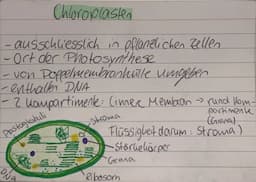 Chloroplasten
- ausschliesslich in pflanzlichen Zellen
- Ort der Photosynthese
- von Doppelmembranhülle umgeben
- enthalten DNA
- 2 Kompartimente: (innere Membran → rund Kompartimente (Grana)
Flüssigkeit darum: Stroma)
Plastoglobuli
Stroma
Stärkekörper
Grana
DNA
Ribosom